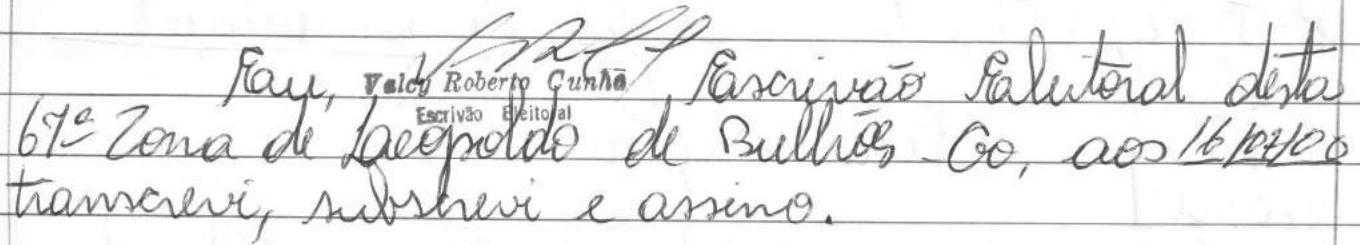 Eu, Valdy Roberto Cunha, Escrivão Eleitoral desta
Escrivão Eleitoral
67ª Zona de Leopoldo de Bulhões - Go, aos
transcrevi, subscrevi e assino.